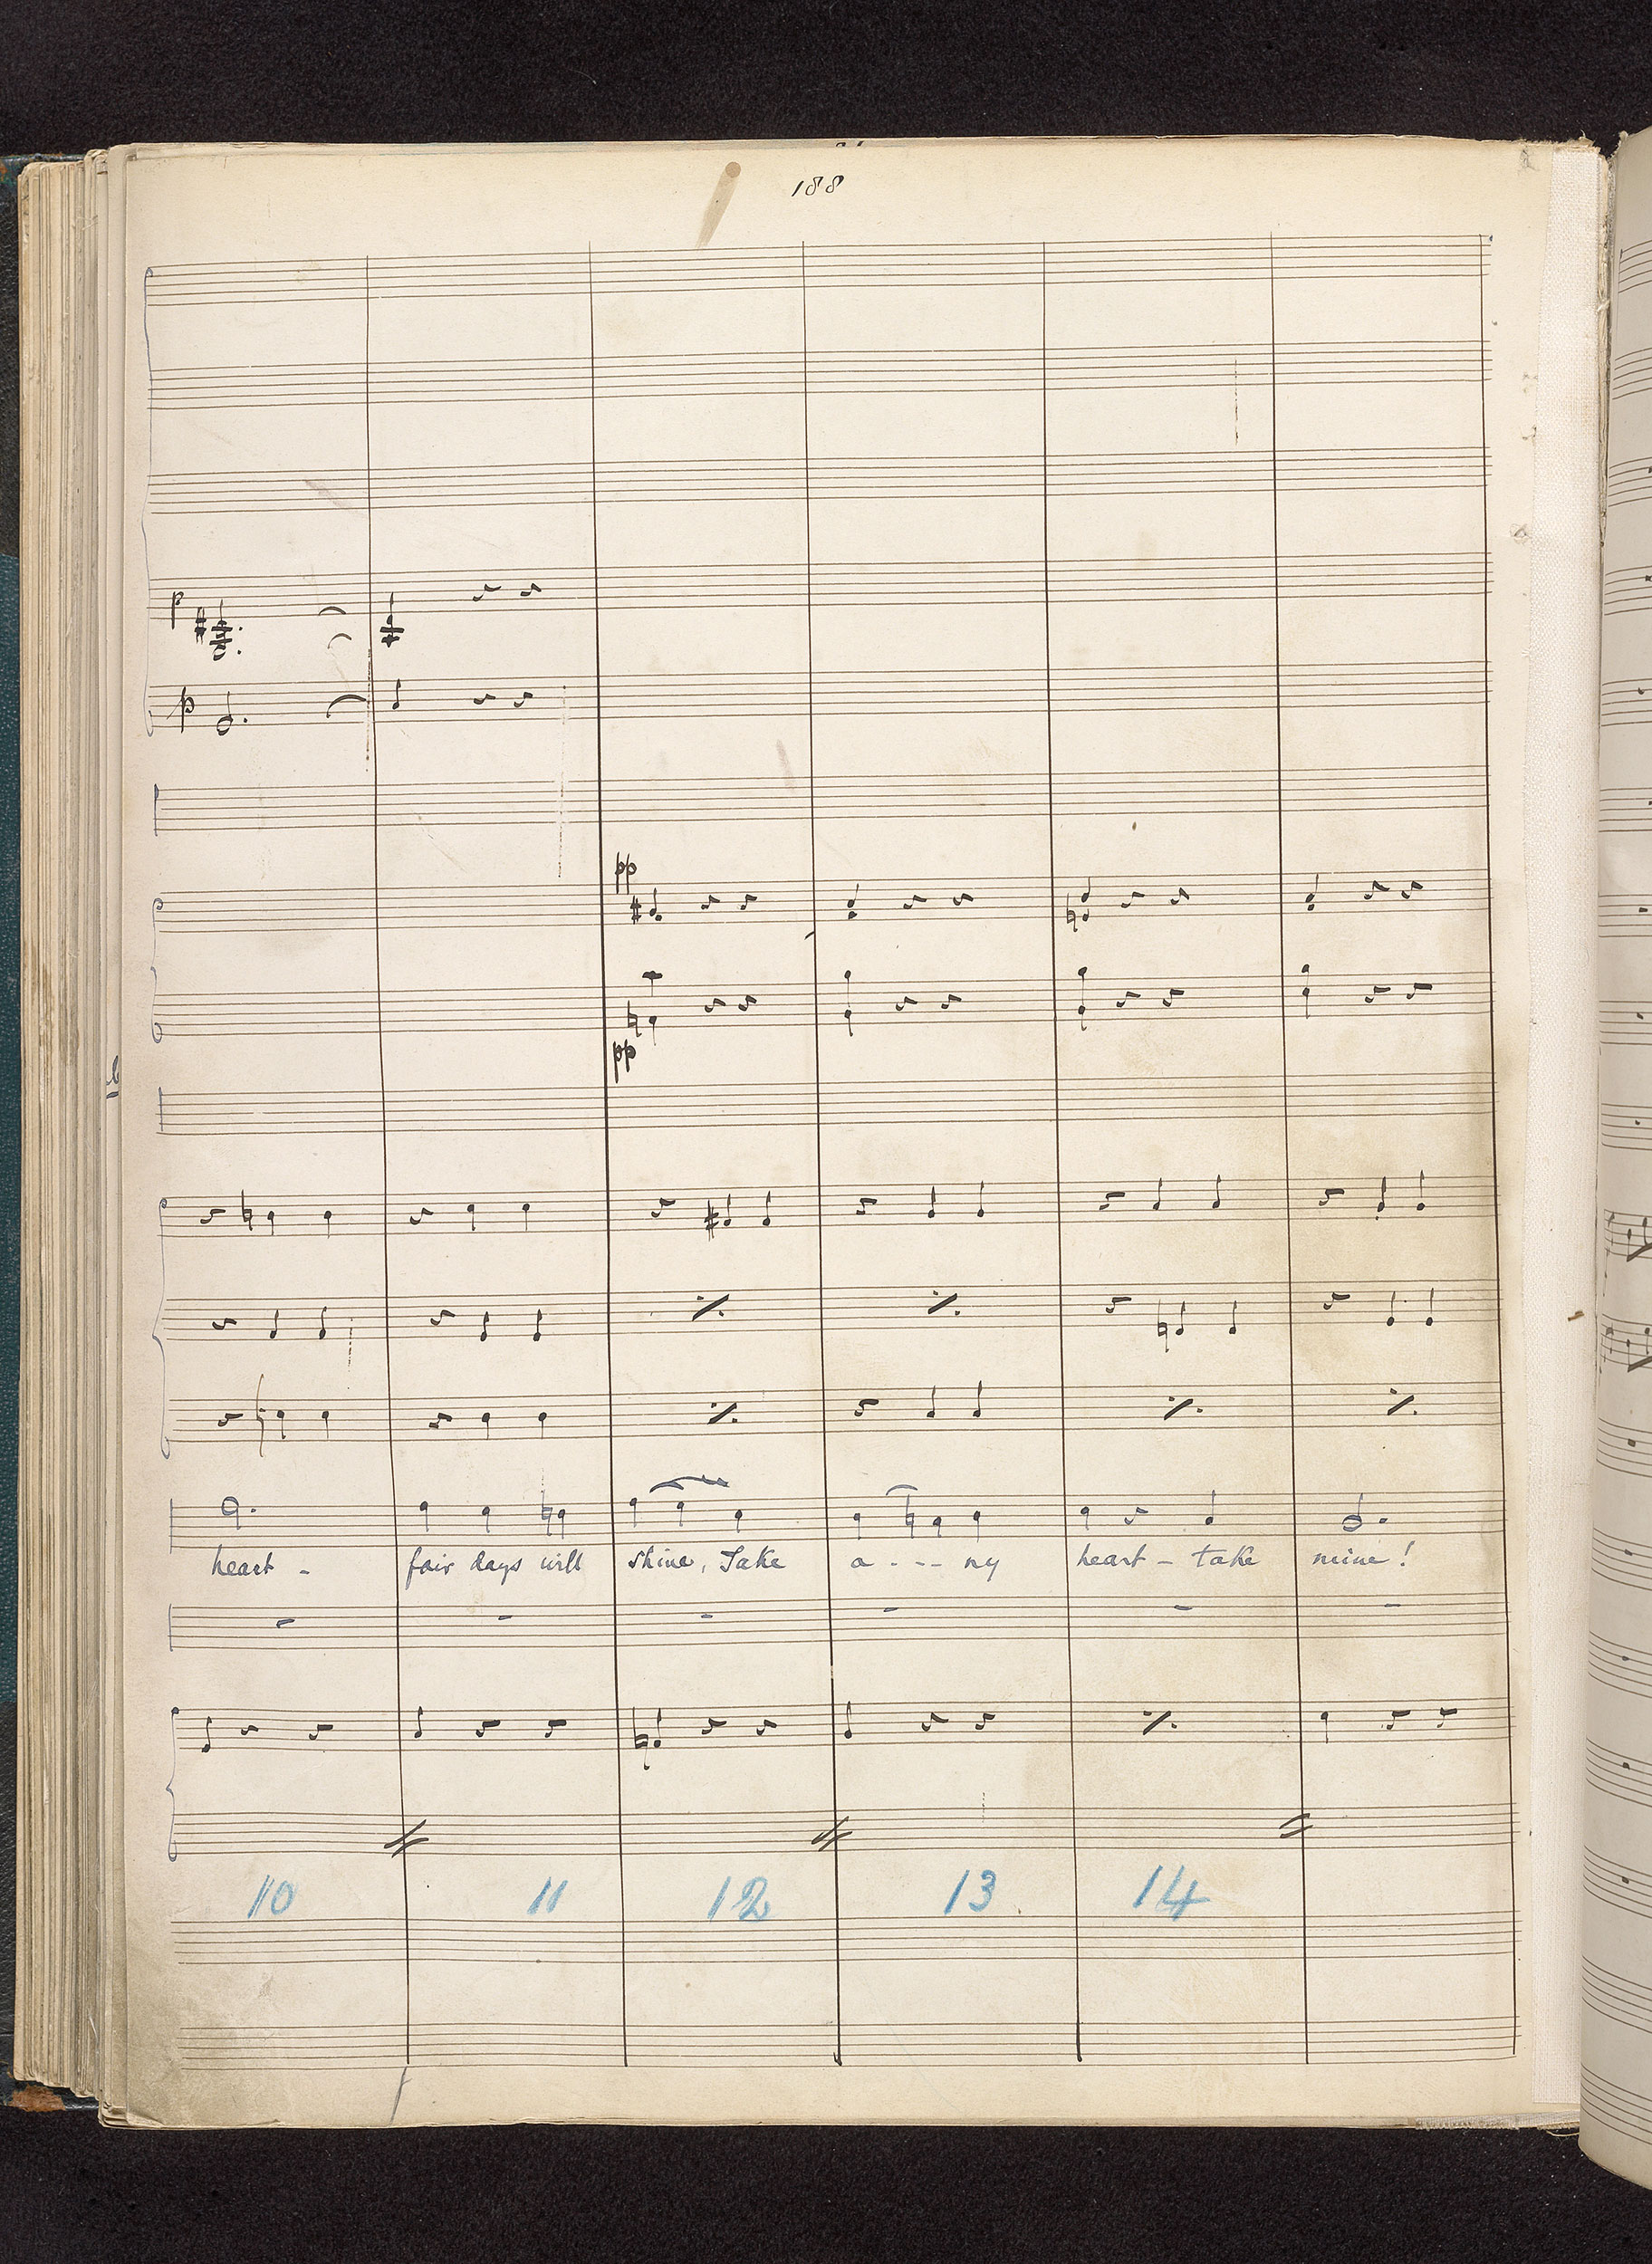 188
p
p
pp
pp
heart - fair days will shine, Take a - - - ny heart - take mine!
10 11 12 13 14